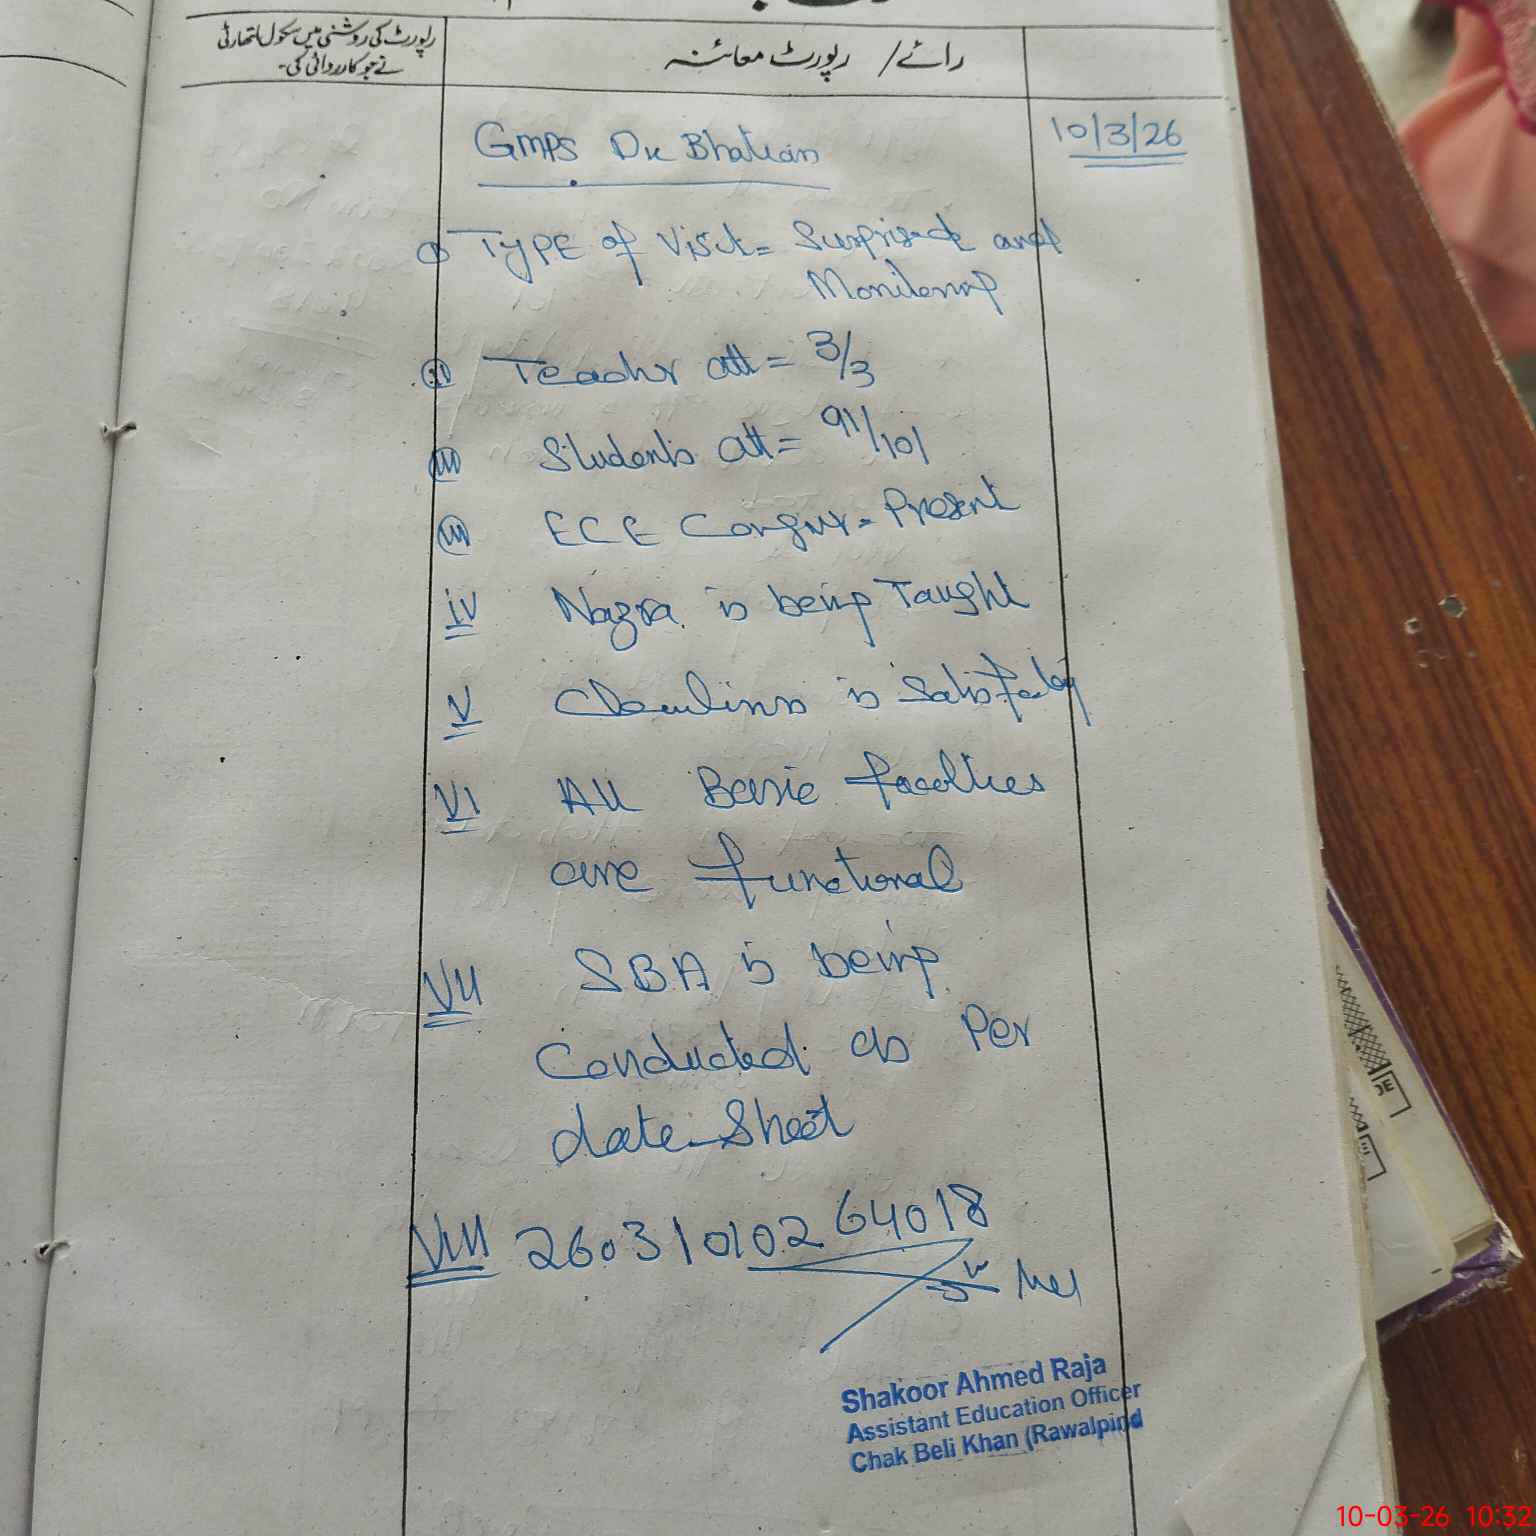 رپورٹ کی روشنی میں سکول اتھارٹی
نے جو کارروائی کی۔
رائے / رپورٹ معائنہ
GMPS Dk Bhatian
10/3/26
i TYPE of Visit = Surprised and
Monitoring
ii Teachr att = 3/3
iii Students att = 91/101
iii ECE Cornor = Present
iv Nazra is being Taught
V Cleanlinss is Satisfactory
VI All Basic facilties
are functional
VII SBA is being
Conducted as Per
date Sheet
VIII 26031010264018
Shakoor Ahmed Raja
Assistant Education Officer
Chak Beli Khan (Rawalpind
10-03-26 10:32